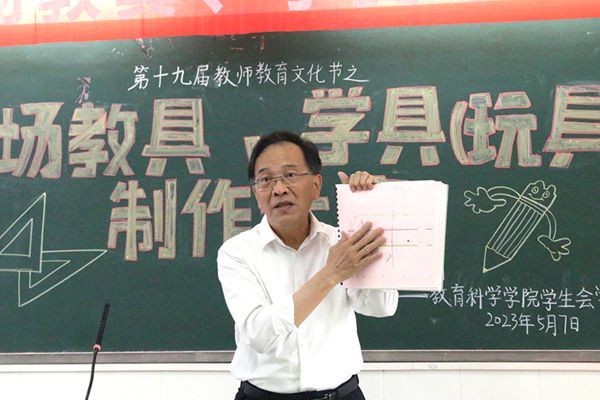 第十九届教师教育文化节之
场教具、学具(玩具
制作
教育科学学院学生会
2023年5月7日